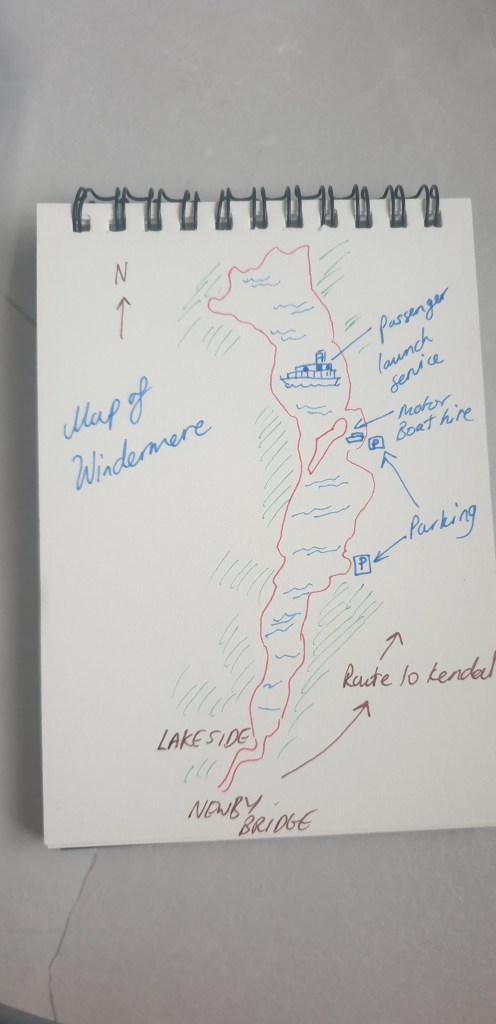 N
Map of
Windermere
Passenger
launch
service
Motor
Boat hire
P
Parking
P
Route to Kendal
LAKESIDE
NEWBY
BRIDGE